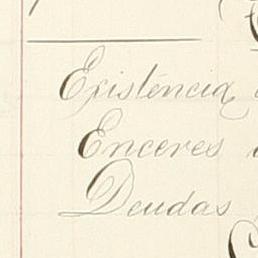 Existência
Enceres
Deudas